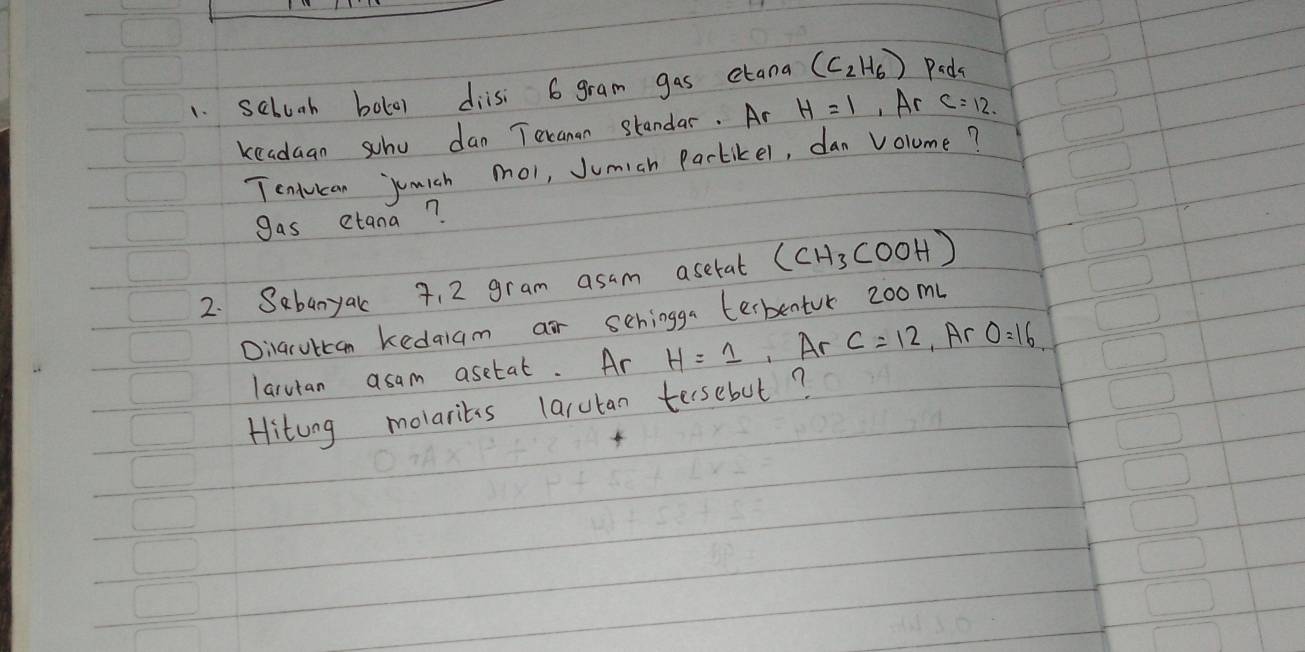 1. Sebuah botol diisi 6 gram gas etana (C₂H₆) Pada
keadaan suhu dan Tekanan standar. Ar H = 1, Ar C = 12.
Tentukan jumlah mol, Jumlah Partikel, dan Volume?
gas etana?
2. Sebanyak 7,2 gram asam asetat (CH₃COOH)
Dilarutkan kedalam air sehingga terbentuk 200 mL
larutan asam asetat. Ar H = 1, Ar C = 12, Ar O = 16.
Hitung molaritas larutan tersebut?